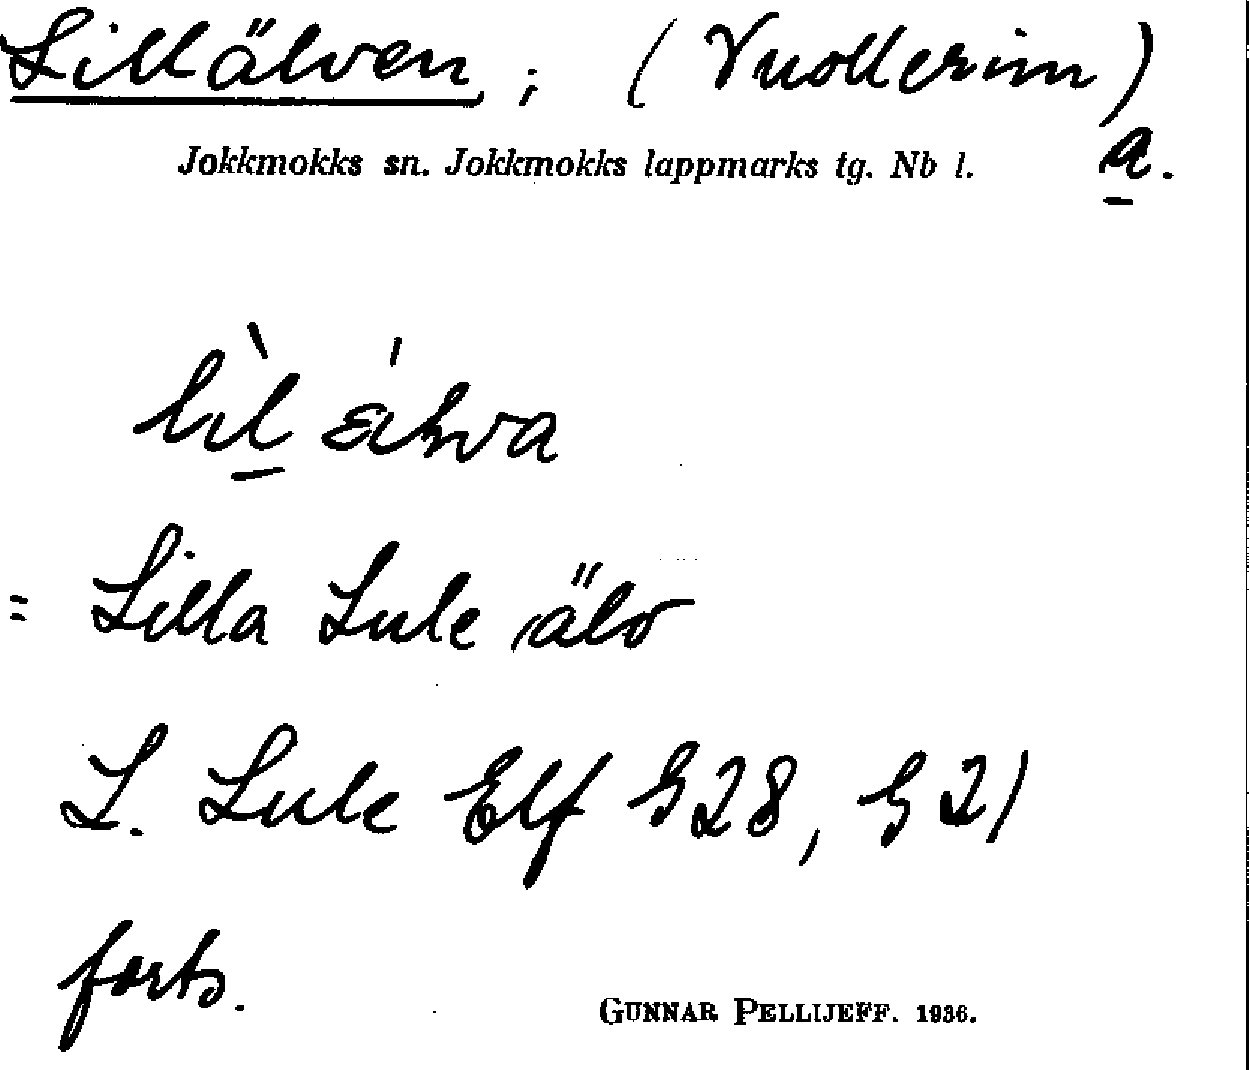 Lillälven ; (Vuollerim)
Jokkmokks sn. Jokkmokks lappmarks tg. Nb l. a.
= Lilla Lule älv
L. Lule Elf G28, G21
forts.
GUNNAR PELLIJEFF. 1936.